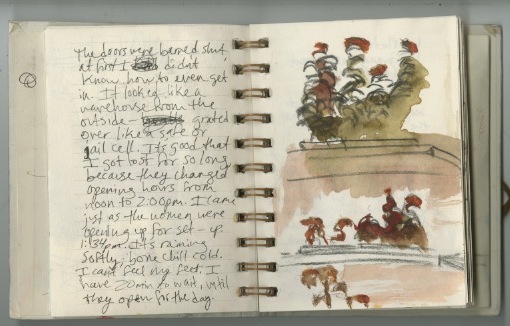 The doors were barred shut,
at first I didn't
know how to even get
in. It looked like a
warehouse from the
outside - grated
over like a safe or
jail cell. It's good that
I got lost for so long
because they changed
opening hours from
noon to 2:00pm. I came
just as the women were
opening up for set-up
1:34pm. It's raining
softly, bone chill cold.
I can't feel my feet. I
have 20 min to wait, until
they open for the day.